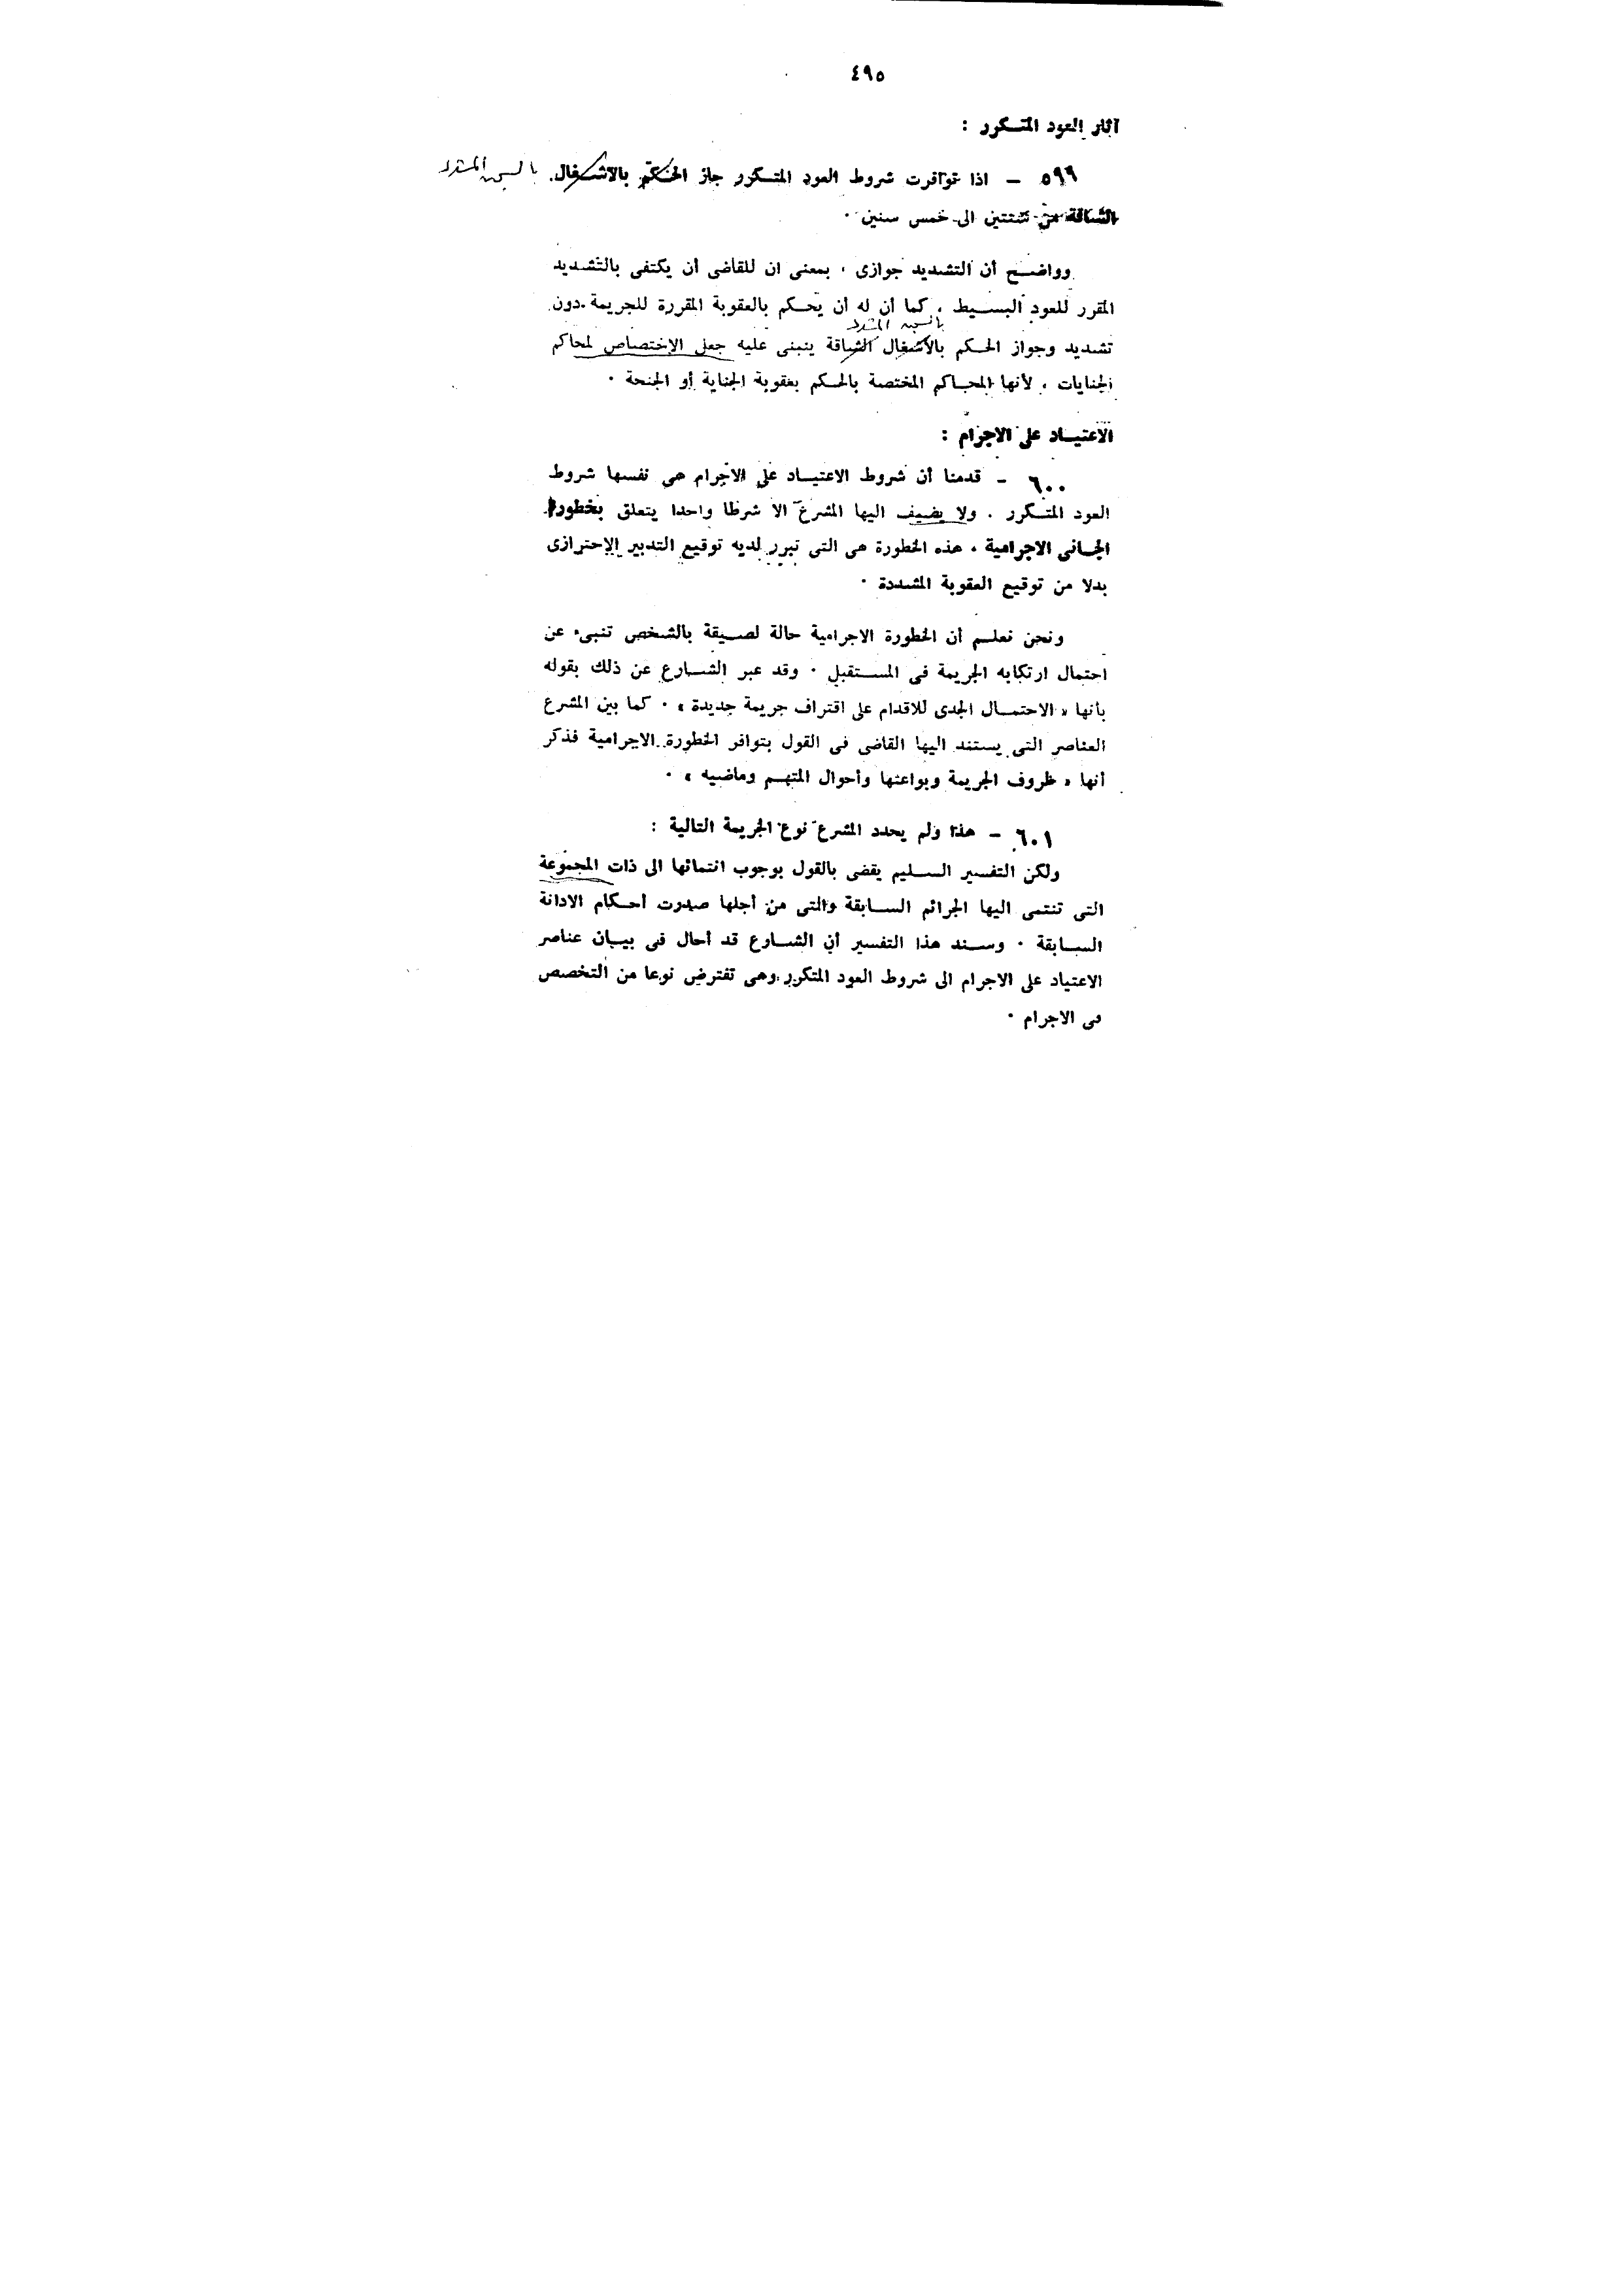 ٤٩٥
آثار العود المتكرر :
٥٩٩ - اذا توافرت شروط العود المتكرر جاز الحكم بالاشغال. بالسجن المشدد
الشاقة من سنتين الى خمس سنين .
وواضح أن التشديد جوازى ، بمعنى ان للقاضى أن يكتفى بالتشديد
المقرر للعود البسيط ، كما أن له أن يحكم بالعقوبة المقررة للجريمة دون
بالسجن المشدد
تشديد وجواز الحكم بالأشغال الشاقة ينبنى عليه جعل الاختصاص لمحاكم
الجنايات ، لأنها المحاكم المختصة بالحكم بعقوبة الجناية أو الجنحة .
الاعتياد على الاجرام :
٦٠٠ - قدمنا أن شروط الاعتياد على الاجرام هى نفسها شروط
العود المتكرر . ولا يضيف اليها المشرع الا شرطا واحدا يتعلق بخطورة
الجانى الاجرامية ، هذه الخطورة هى التى تبرر لديه توقيع التدبير الاحترازى
بدلا من توقيع العقوبة المشددة .
ونحن نعلم أن الخطورة الاجرامية حالة لصيقة بالشخص تنبىء عن
احتمال ارتكابه الجريمة فى المستقبل . وقد عبر الشارع عن ذلك بقوله
بأنها « الاحتمال الجدى للاقدام على اقتراف جريمة جديدة » . كما بين المشرع
العناصر التى يستند اليها القاضى فى القول بتوافر الخطورة الاجرامية فذكر
أنها « ظروف الجريمة وبواعثها وأحوال المتهم وماضيه » .
٦٠١ - هذا ولم يحدد المشرع نوع الجريمة التالية :
ولكن التفسير السليم يقضى بالقول بوجوب انتمائها الى ذات المجموعة
التى تنتمى اليها الجرائم السابقة والتى من أجلها صدرت أحكام الادانة
السابقة . وسند هذا التفسير أن الشارع قد أحال فى بيان عناصر
الاعتياد على الاجرام الى شروط العود المتكرر وهى تفترض نوعا من التخصص
فى الاجرام .